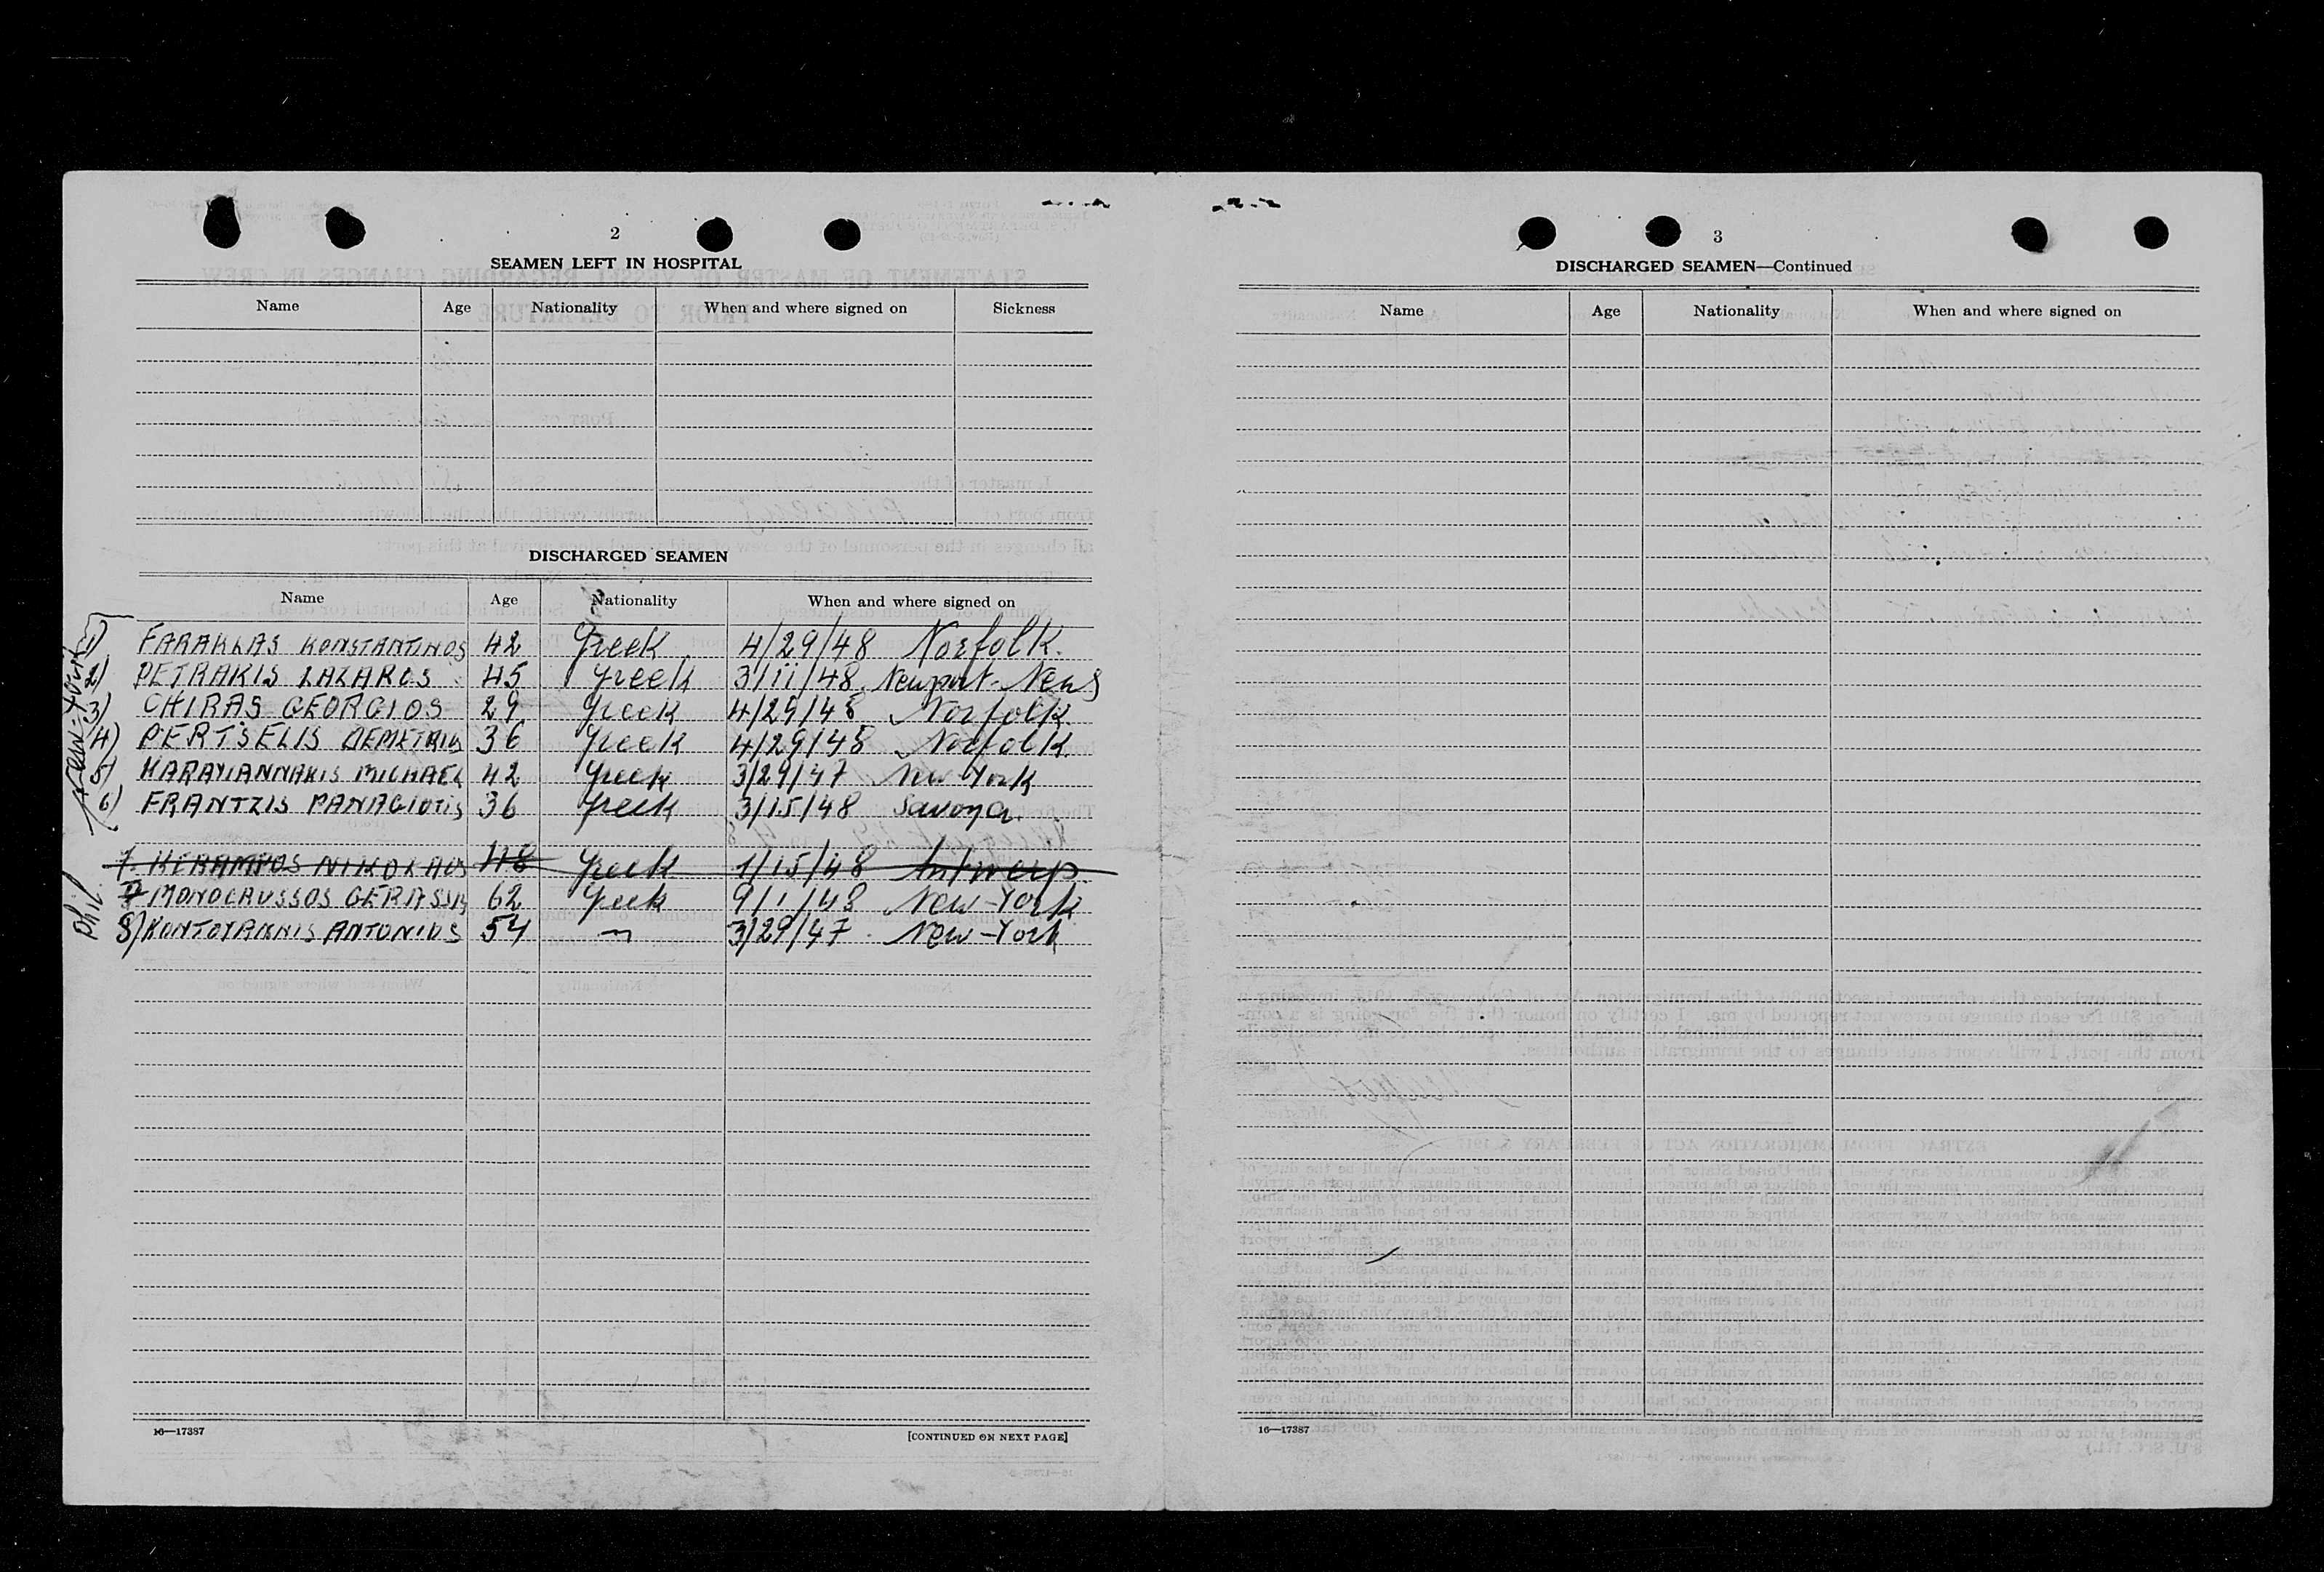 2
SEAMEN LEFT IN HOSPITAL
Name Age Nationality When and where signed on Sickness
DISCHARGED SEAMEN
Name Age Nationality When and where signed on
1) FARAKLAS KONSTANTINOS 42 Greek 4/29/48 Norfolk.
2) PETRAKIS LAZAROS 45 Greek 3/11/48. Newport-News
3) CHIRAS GEORGIOS 29 Greek 4/29/48 Norfolk.
4) PERTSELIS DEMETRIOS 36 Greek 4/29/48 Norfolk.
5) KARAYIANNAKIS MICHAEL 42 Greek 3/29/47 New York
6) FRANTZIS PANAGIOTIS 36 Greek 3/15/48 Savona.
7. KERAMPOS NIKOLAOS 48 Greek 1/15/48 Antwerp.
Phil.
7 MONOCRUSSOS GERASSIM 62 Greek 9/1/48 New-York
8) KONTOYANNIS ANTONIOS 54 3/29/47 New-York
16—17387
[CONTINUED ON NEXT PAGE]
3
DISCHARGED SEAMEN—Continued
Name Age Nationality When and where signed on
16—17387